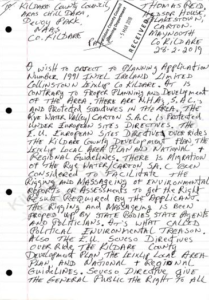 To Kildare County Council
Aras Chill Dara
Devoy Park,
Naas
Co. Kildare
Thomas Reid
Hedsor House,
Blakestown,
Carton,
Maynooth
Co Kildare
28-2-2019
I wish to object to Planning Application
Number, 1991 Intel Ireland Limited
Collinstown Leixlip Co. Kildare. It is
contrary to Proper Planning and Development of
the Area, there are N.H.A, S.A.C,
and Protected Structures in the Area, the
Rye Water Valley/Carton S.A.C. is Protected
under European Sites Directives, the
E.U. European Sites Directives over rides
the Kildare County Development Plan the
Leixlip Local Area Plan and National &
Regional Guidelines. There is
of the Rye Water/Carton S.A.C been
considered to facilitate the
Rigging and Massaging of Environmental
Reports or Assessments to get the Right
Results required by the Applicant.
This Rigging and Massaging is been
Propped up by State Bodies State Agents
and Politicians, it's what called
Political Environmental Treason.
Also the E.U. Seveso Directives
over ride the Kildare County
Development Plan the Leixlip Local Area
Plan, and National & Regional
Guidelines. Seveso Directive give
the General Public the Right to all